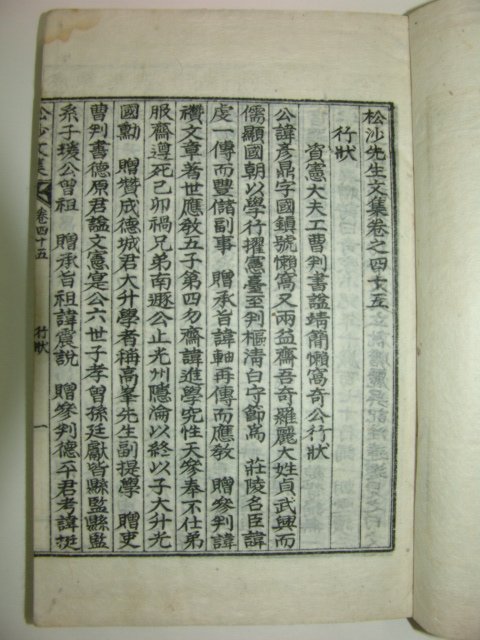 松沙先生文集卷之四十五
行狀
資憲大夫工曹判書諡靖簡懶窩奇公行狀
公諱彥鼎字國鎮號懶窩又兩益齋吾奇羅麗大姓貞武興而
儒顯國朝以學行擢憲臺至判樞清白守節爲 莊陵名臣諱
虔一傳而豐儲副事 贈承旨諱軸再傳而應教 贈參判諱
禶文章著世應教五子第四勿齋諱進學究性天參奉不仕弟
服齋遵死己卯禍兄弟南遯公止光州隱淪以終以子大升光
國勳 贈贊成德城君大升學者稱高峯先生副提學 贈吏
曹判書德原君諡文憲寔公六世子孝曾孫廷獻皆縣監縣監
系子㙜公曾祖 贈承旨祖諱震說 贈參判德平君考諱挺
松沙文集
卷四十五
行狀
一